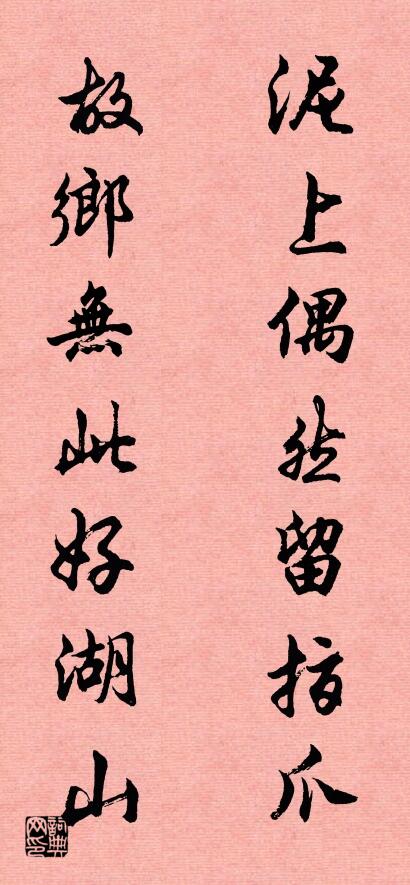 泥上偶然留指爪
故鄉無此好湖山
詞典網印